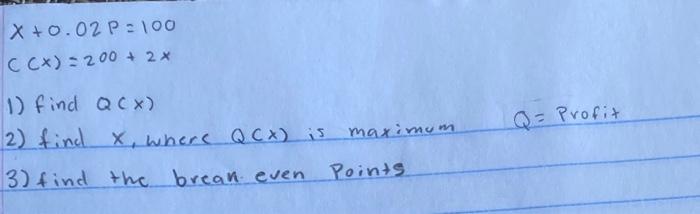 x + 0.02P = 100
C(x) = 200 + 2x
1) find Q(x)
2) find x, where Q(x) is maximum Q = Profit
3) find the brean even Points